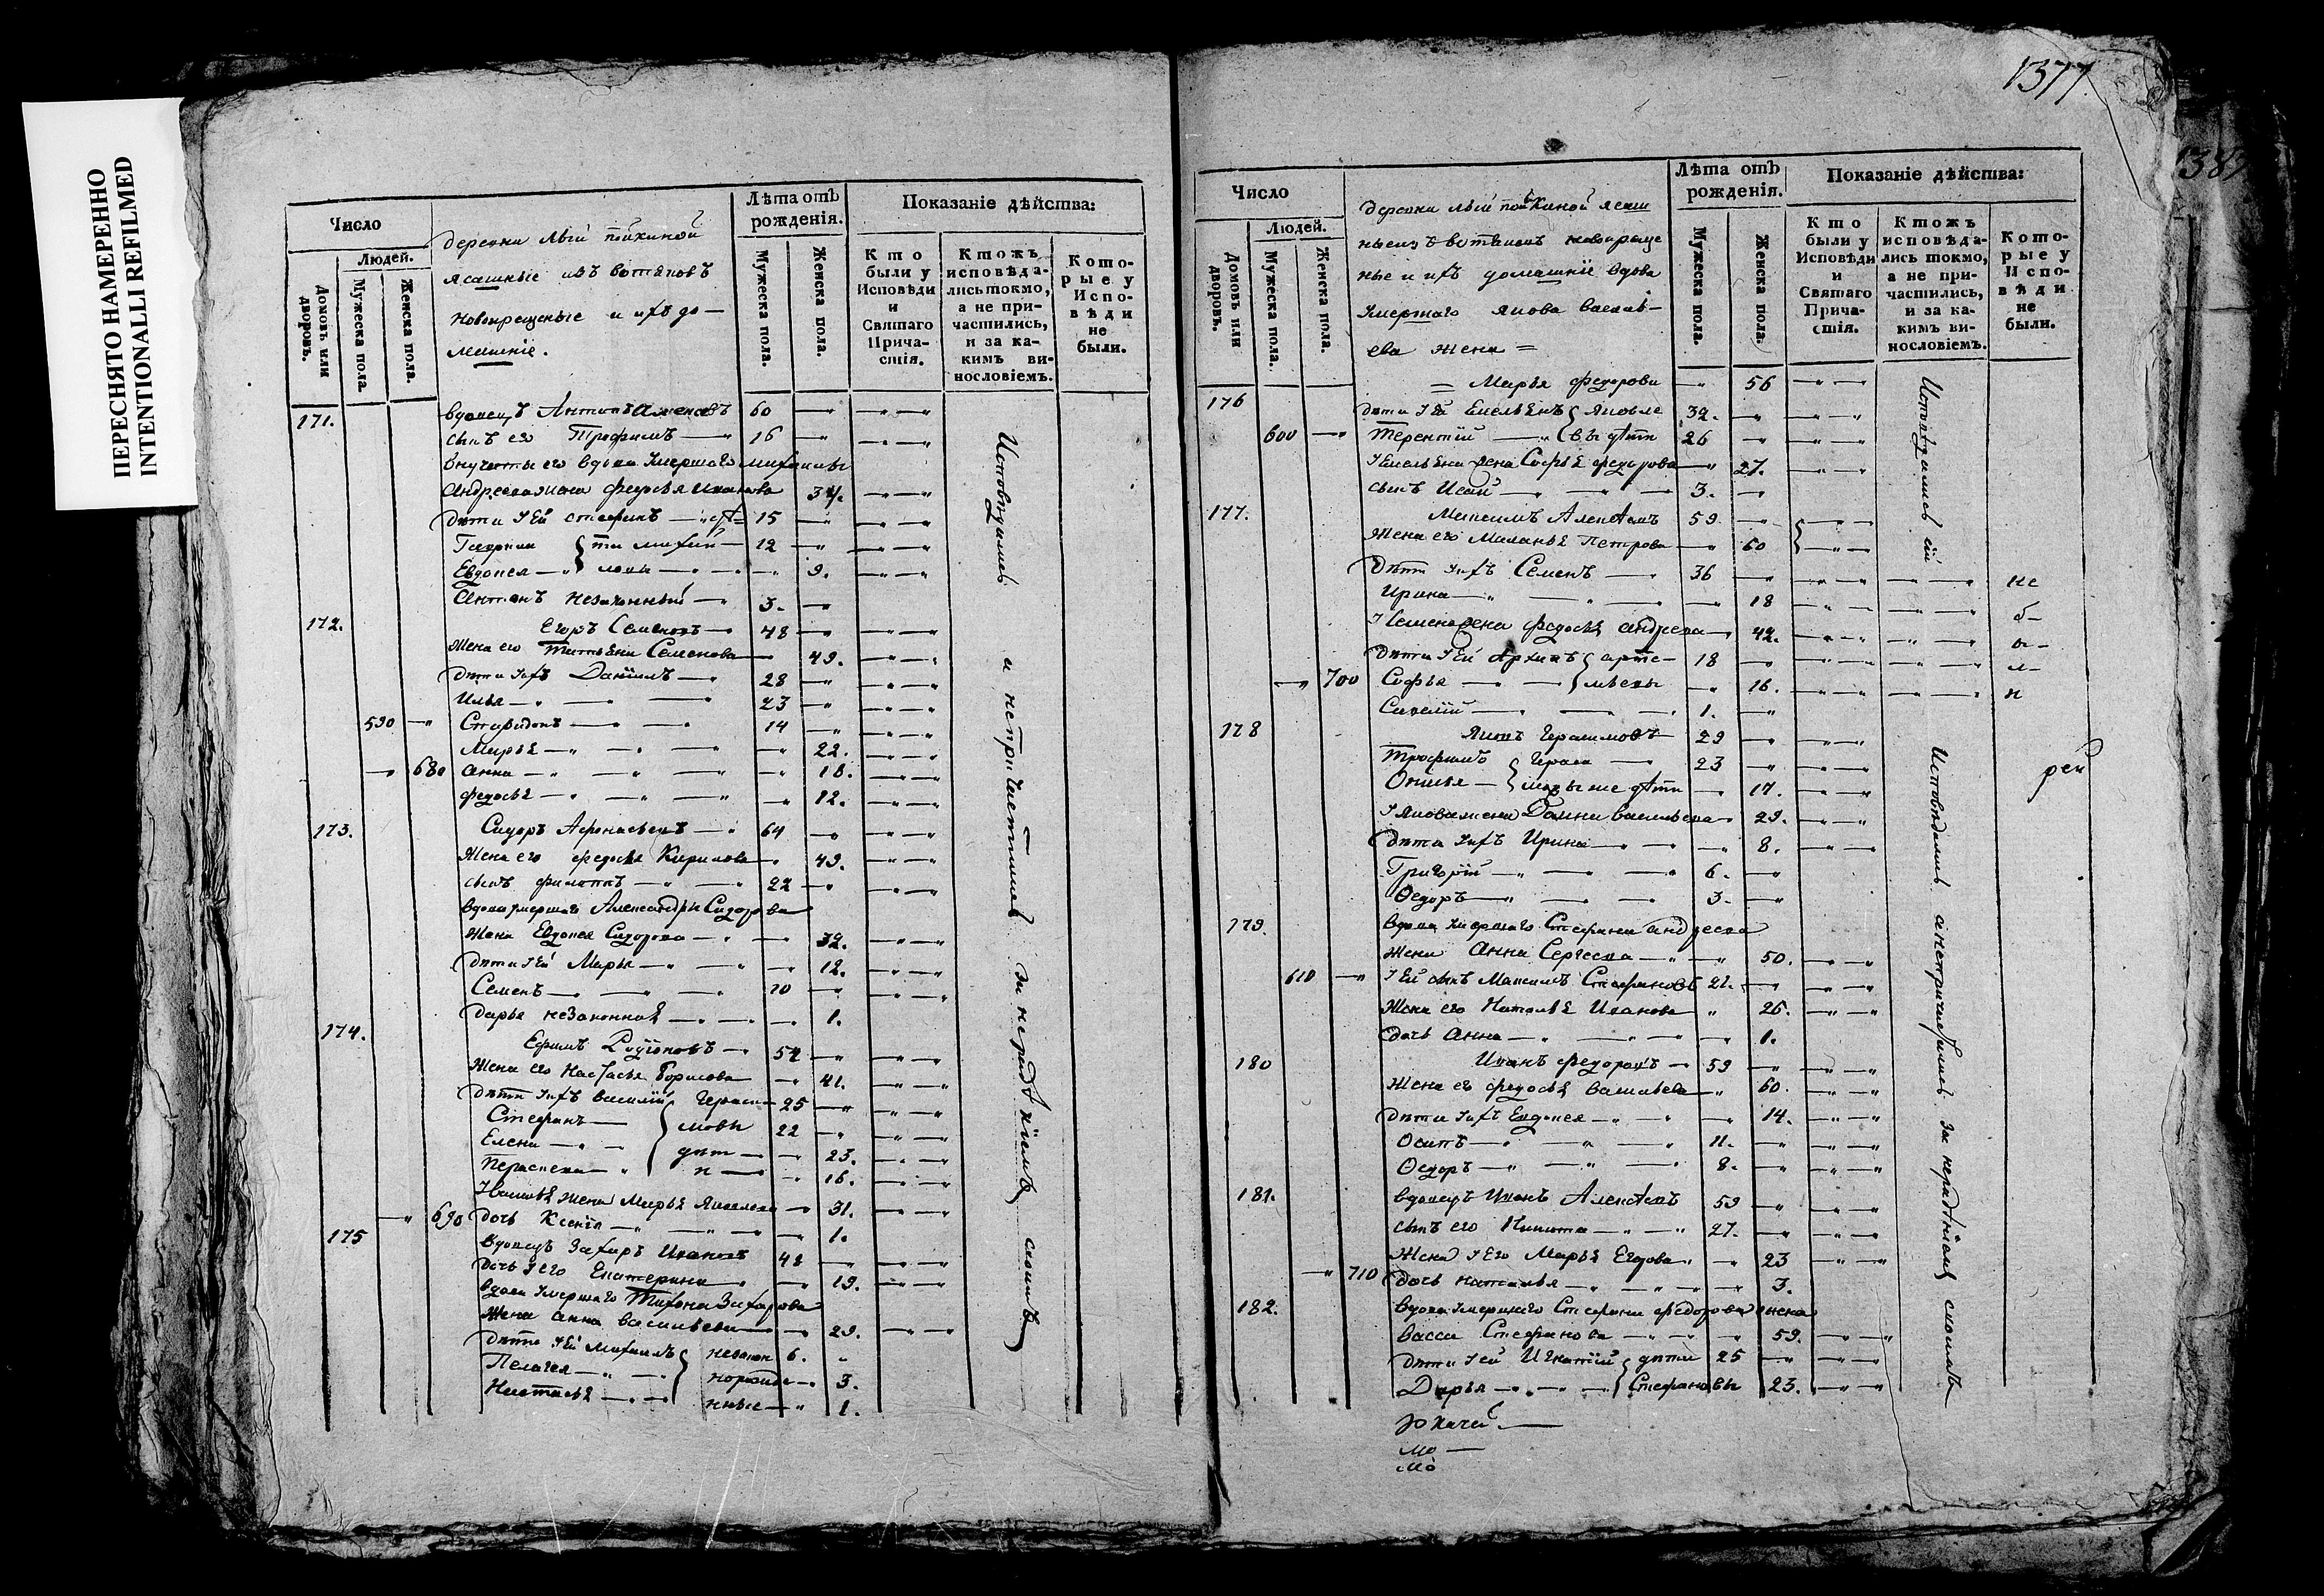 ПЕРЕСНЯТО НАМЕРЕННО
INTENTIONALLI REFILMED
Число
Людей.
Домовъ или дворовъ.
Мужеска пола.
Женска пола.
деревни
ясашные изъ вотяковъ
новокрещеные и ихъ до-
машніе.
Лѣта отъ рожденія.
Мужеска пола.
Женска пола.
Показаніе дѣйства:
Кто были у Исповѣди и Святаго Причастія.
Ктожъ исповѣдались токмо, а не причастились, и за какимъ винословіемъ.
Которые у Исповѣди не были.
171. вдовецъ Антонъ 60
сынъ его Трофимъ 16
вдова умершаго
Андреева жена Федосья Иванова 34.
дѣти Ей Стефанъ 15
12
Евдокея 9.
Антонъ незаконный 3.
172. Егоръ Семеновъ 48
жена его Татьяна Семенова 49.
дѣти ихъ Даніилъ 28
Илья 23
590 Спиридонъ 14
Марья 22.
680 Анна 18.
Федосья 12.
173. Сидоръ Афонасьевъ 64
жена его Федосья Кирилова 49.
сынъ Филиппъ 22
вдова умершаго Александра Сидорова
жена Евдокея Сидорова 32.
дѣти Ей Марья 12.
Семенъ 10
дарья незаконная 1.
174. Ефимъ Родіоновъ 54
жена его Настасья Борисова 41.
дѣти ихъ Василій Гераси- 25
Стефанъ мовы 22
Елена дѣт- 23.
Параскева и 16.
Василья жена Марья Яковлева 31.
690 дочь Ксенія 1.
175 вдовецъ Захаръ Ивановъ 48
дочь Его Екатерина 19.
вдова умершаго Тихона Захарова
жена Анна Васильева 29.
дѣти Ей Михаилъ незакон 6.
Пелагея норожде 3.
Настасья нные 1.
Исповѣдались и непричастились за нерадѣніемъ своимъ
1377
Число
Людей.
Домовъ или дворовъ.
Мужеска пола.
Женска пола.
деревни ясаш
ные изъ вотяковъ новокреще
ные и ихъ домашніе вдова
умершаго Якова Василь-
ева жена =
Лѣта отъ рожденія.
Мужеска пола.
Женска пола.
Показаніе дѣйства:
Кто были у Исповѣди и Святаго Причастія.
Ктожъ исповѣдались токмо, а не причастились, и за какимъ винословіемъ.
Которые у Исповѣди не были.
= Марья Федорова 56
176 дѣти Ей Емельянъ Яковле 32.
600 Терентій вы дѣти 26
Емельяна жена Софья Федорова 27.
сынъ Исай 3.
177. Максимъ Алексѣевъ 59.
Жена его Маланья Петрова 60
Дѣти ихъ Семенъ 36 не
Ирина 18 б-
Семена жена Федосья Андреева 42. ы-
дѣти Ей Архипъ арте- 18 л-
700 Софья мьевы 16. и
Савелій 1.
178 Яковъ Герасимовъ 29
Трофимъ Гераси 23
мовы же дѣти 17.
Якова жена Домна Васильева 29.
дѣти ихъ Ирина 8.
Григорій 6.
Ѳедоръ 3.
179. вдова умершаго Стефана Андреева
жена Анна Сергеева 50.
610 Ей сынъ Максимъ Стефановъ 21.
Жена его Наталья Иванова 26.
дочь Анна 1.
180 Иванъ Федоровъ 59
Жена его Федосья Васильева 60.
дѣти ихъ Евдокея 14.
Осипъ 11.
Ѳедоръ 8.
181. вдовецъ Иванъ Алексѣевъ 59
сынъ его Никита 27.
Жена Его Марья Егорова 23
710 дочь Наталья 3.
182. вдова умершаго Стефана Федорова жена
васса Стефанова 59.
дѣти Ей Игнатій дѣти 25
Дарья Стефановы 23.
Исповѣдались
Исповѣдались анепричастились за нерадѣніемъ своимъ
рей